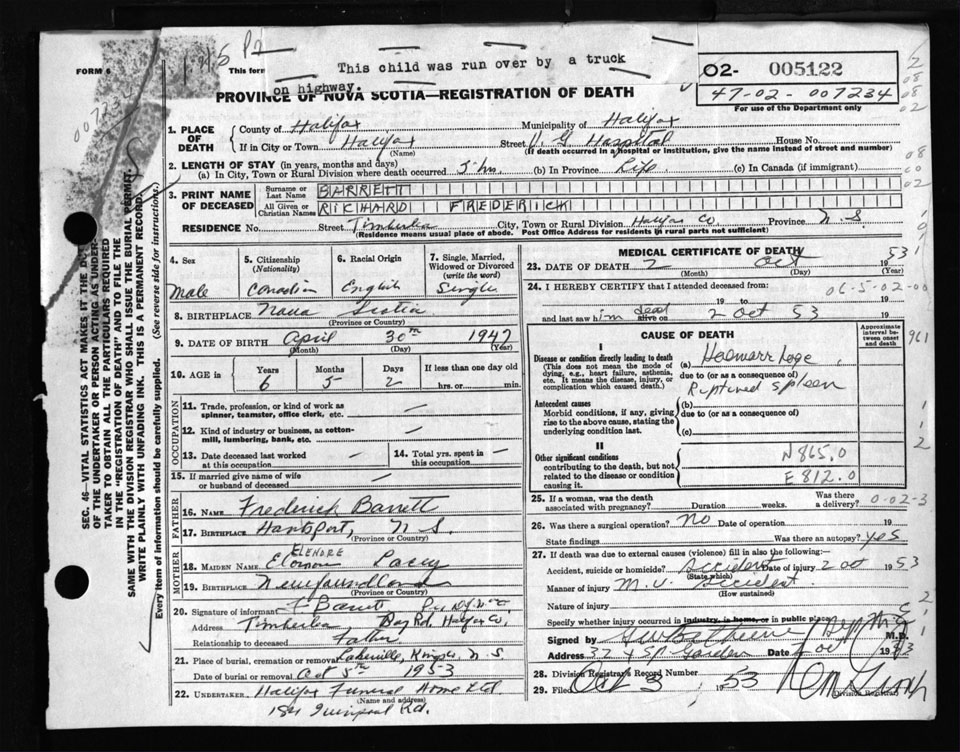 1415 P2
FORM 6
This form
This child was run over by a truck
on highway.
O2- 005122
47-02-007234
For use of the Department only
007234
PROVINCE OF NOVA SCOTIA—REGISTRATION OF DEATH
SEC. 46—VITAL STATISTICS ACT MAKES IT THE DUTY
OF THE UNDERTAKER OR PERSON ACTING AS UNDER-
TAKER TO OBTAIN ALL THE PARTICULARS REQUIRED
IN THE "REGISTRATION OF DEATH" AND TO FILE THE
SAME WITH THE DIVISION REGISTRAR WHO SHALL ISSUE THE BURIAL PERMIT.
WRITE PLAINLY WITH UNFADING INK. THIS IS A PERMANENT RECORD.
Every item of information should be carefully supplied. (See reverse side for instructions.)
1. PLACE OF DEATH
County of Halifax Municipality of Halifax
If in City or Town Halifax Street V. G. Hospital House No.
(Name) (If death occurred in a hospital or institution, give the name instead of street and number)
2. LENGTH OF STAY (in years, months and days)
(a) In City, Town or Rural Division where death occurred 5 hrs. (b) In Province Life (c) In Canada (if immigrant)
3. PRINT NAME OF DECEASED
Surname or Last Name BARRETT
All Given or Christian Names RICHARD FREDERICK
RESIDENCE No. Street Timberlea City, Town or Rural Division Halifax Co. Province N S
(Residence means usual place of abode. Post Office Address for residents in rural parts not sufficient)
4. Sex
Male
5. Citizenship (Nationality)
Canadian
6. Racial Origin
English
7. Single, Married, Widowed or Divorced (write the word)
Single
8. BIRTHPLACE Nova Scotia
(Province or Country)
9. DATE OF BIRTH April 30th 1947
(Month) (Day) (Year)
10. AGE in Years Months Days If less than one day old
6 5 2 hrs. or min.
OCCUPATION
11. Trade, profession, or kind of work as spinner, teamster, office clerk, etc. —
12. Kind of industry or business, as cotton-mill, lumbering, bank, etc. —
13. Date deceased last worked at this occupation —
14. Total yrs. spent in this occupation —
15. If married give name of wife or husband of deceased —
FATHER
16. NAME Frederick Barrett
17. BIRTHPLACE Hantsport, N S.
(Province or Country)
MOTHER
ELENORE
18. MAIDEN NAME Lacey
19. BIRTHPLACE Newfoundland
(Province or Country)
20. Signature of informant F Barrett
Address Timberlea, Bay Rd. Halifax Co.
Relationship to deceased Father
21. Place of burial, cremation or removal Lakeville, Kings, N S.
Date of burial or removal Oct 5th 1953
22. UNDERTAKER Halifax Funeral Home Ltd.
(Name and address)
Rd.
MEDICAL CERTIFICATE OF DEATH
23. DATE OF DEATH 2 Oct 1953
(Month) (Day) (Year)
24. I HEREBY CERTIFY that I attended deceased from:
06-5-02-00
19 to 19
and last saw him dead alive on 2 Oct 53 19
CAUSE OF DEATH
Approximate interval between onset and death
I
Disease or condition directly leading to death
(This does not mean the mode of dying, e.g., heart failure, asthenia, etc. It means the disease, injury, or complication which caused death.)
(a)
due to (or as a consequence of)
Ruptured Spleen
Antecedent causes
Morbid conditions, if any, giving rise to the above cause, stating the underlying condition last.
(b)
due to (or as a consequence of)
(c)
II
Other significant conditions
contributing to the death, but not related to the disease or condition causing it.
N865.0
E812.0
25. If a woman, was the death associated with pregnancy? Duration weeks. Was there a delivery? 0-02-3
26. Was there a surgical operation? No Date of operation 19
State findings Was there an autopsy? yes
27. If death was due to external causes (violence) fill in also the following:—
Accident, suicide or homicide? Accident Date of injury 2 Oct 1953
(State which)
Manner of injury M.V. Accident
(How sustained)
Nature of injury
Specify whether injury occurred in industry, in home, or in public place
Signed by M.D.
Address Date Oct 1953
28. Division Registrar's Record Number
29. Filed Oct 3 1953
(Division Registrar)